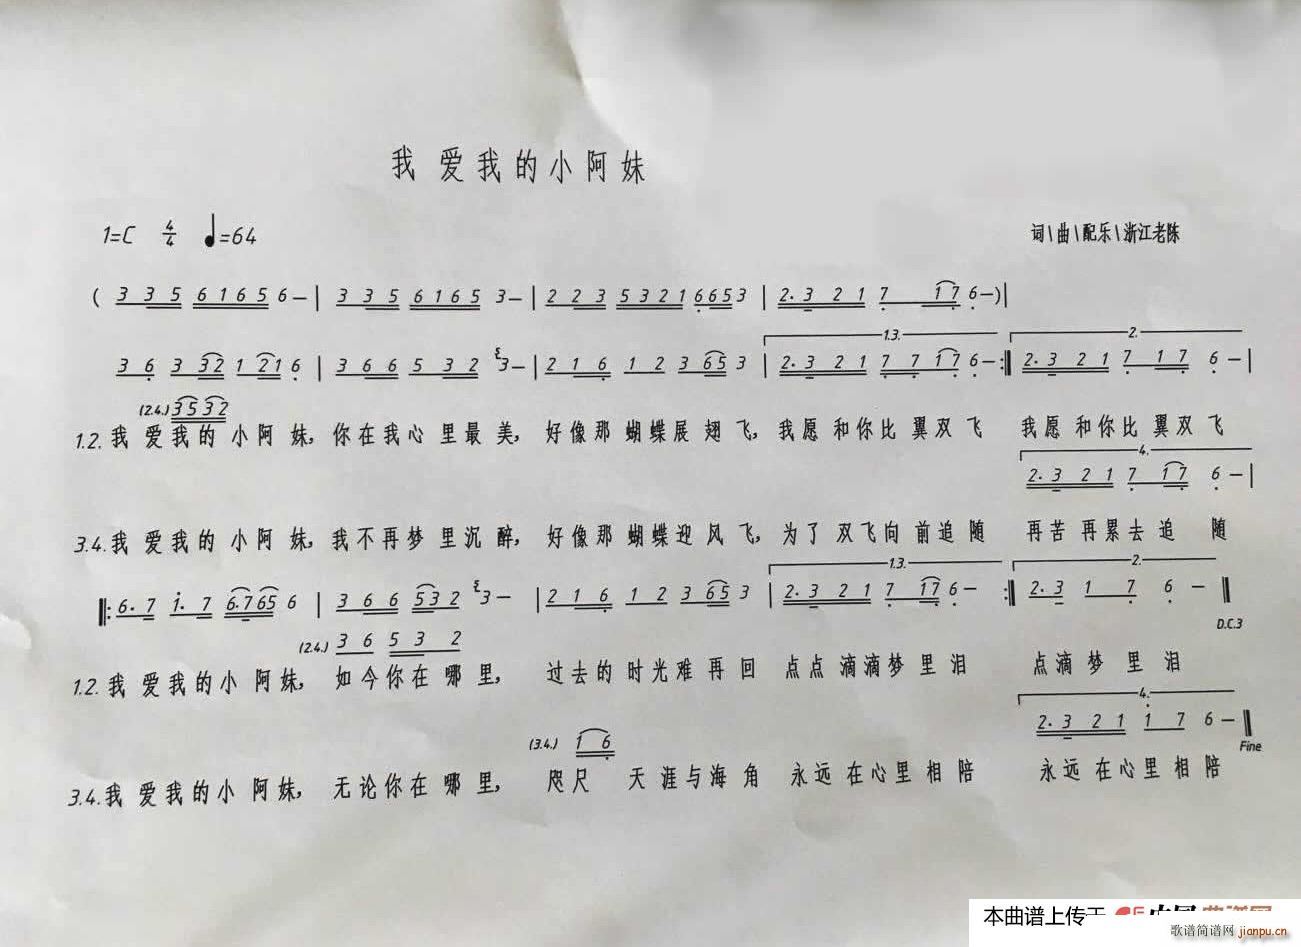 我爱我的小阿妹
1=C 4/4 ♩=64
词\曲\配乐\浙江老陈
( 3 3 5 6 1 6 5 6 — | 3 3 5 6 1 6 5 3 — | 2 2 3 5 3 2 1 6 6 5 3 | 2. 3 2 1 7 1 7 6 —)|
1.3. 2.
3 6 3 3 2 1 2 1 6 | 3 6 6 5 3 2 3 — | 2 1 6 1 2 3 6 5 3 | 2. 3 2 1 7 7 1 7 6 — :‖ 2. 3 2 1 7 1 7 6 — |
(2.4.) 3 5 3 2
1.2. 我爱我的小阿妹, 你在我心里最美, 好像那蝴蝶展翅飞, 我愿和你比翼双飞 我愿和你比翼双飞
4.
2. 3 2 1 7 1 7 6 — |
3.4. 我爱我的小阿妹, 我不再梦里沉醉, 好像那蝴蝶迎风飞, 为了双飞向前追随 再苦再累去追随
1.3. 2.
‖: 6. 7 1. 7 6. 7 6 5 6 | 3 6 6 5 3 2 3 — | 2 1 6 1 2 3 6 5 3 | 2. 3 2 1 7 1 7 6 — :‖ 2. 3 1 7 6 — ‖
D.C.3
(2.4.) 3 6 5 3 2
1.2. 我爱我的小阿妹, 如今你在哪里, 过去的时光难再回 点点滴滴梦里泪 点滴梦里泪
4.
2. 3 2 1 1 7 6 — ‖
Fine
(3.4.) 1 6
3.4. 我爱我的小阿妹, 无论你在哪里, 咫尺天涯与海角 永远在心里相陪 永远在心里相陪
本曲谱上传于
歌谱简谱网
jianpu.cn